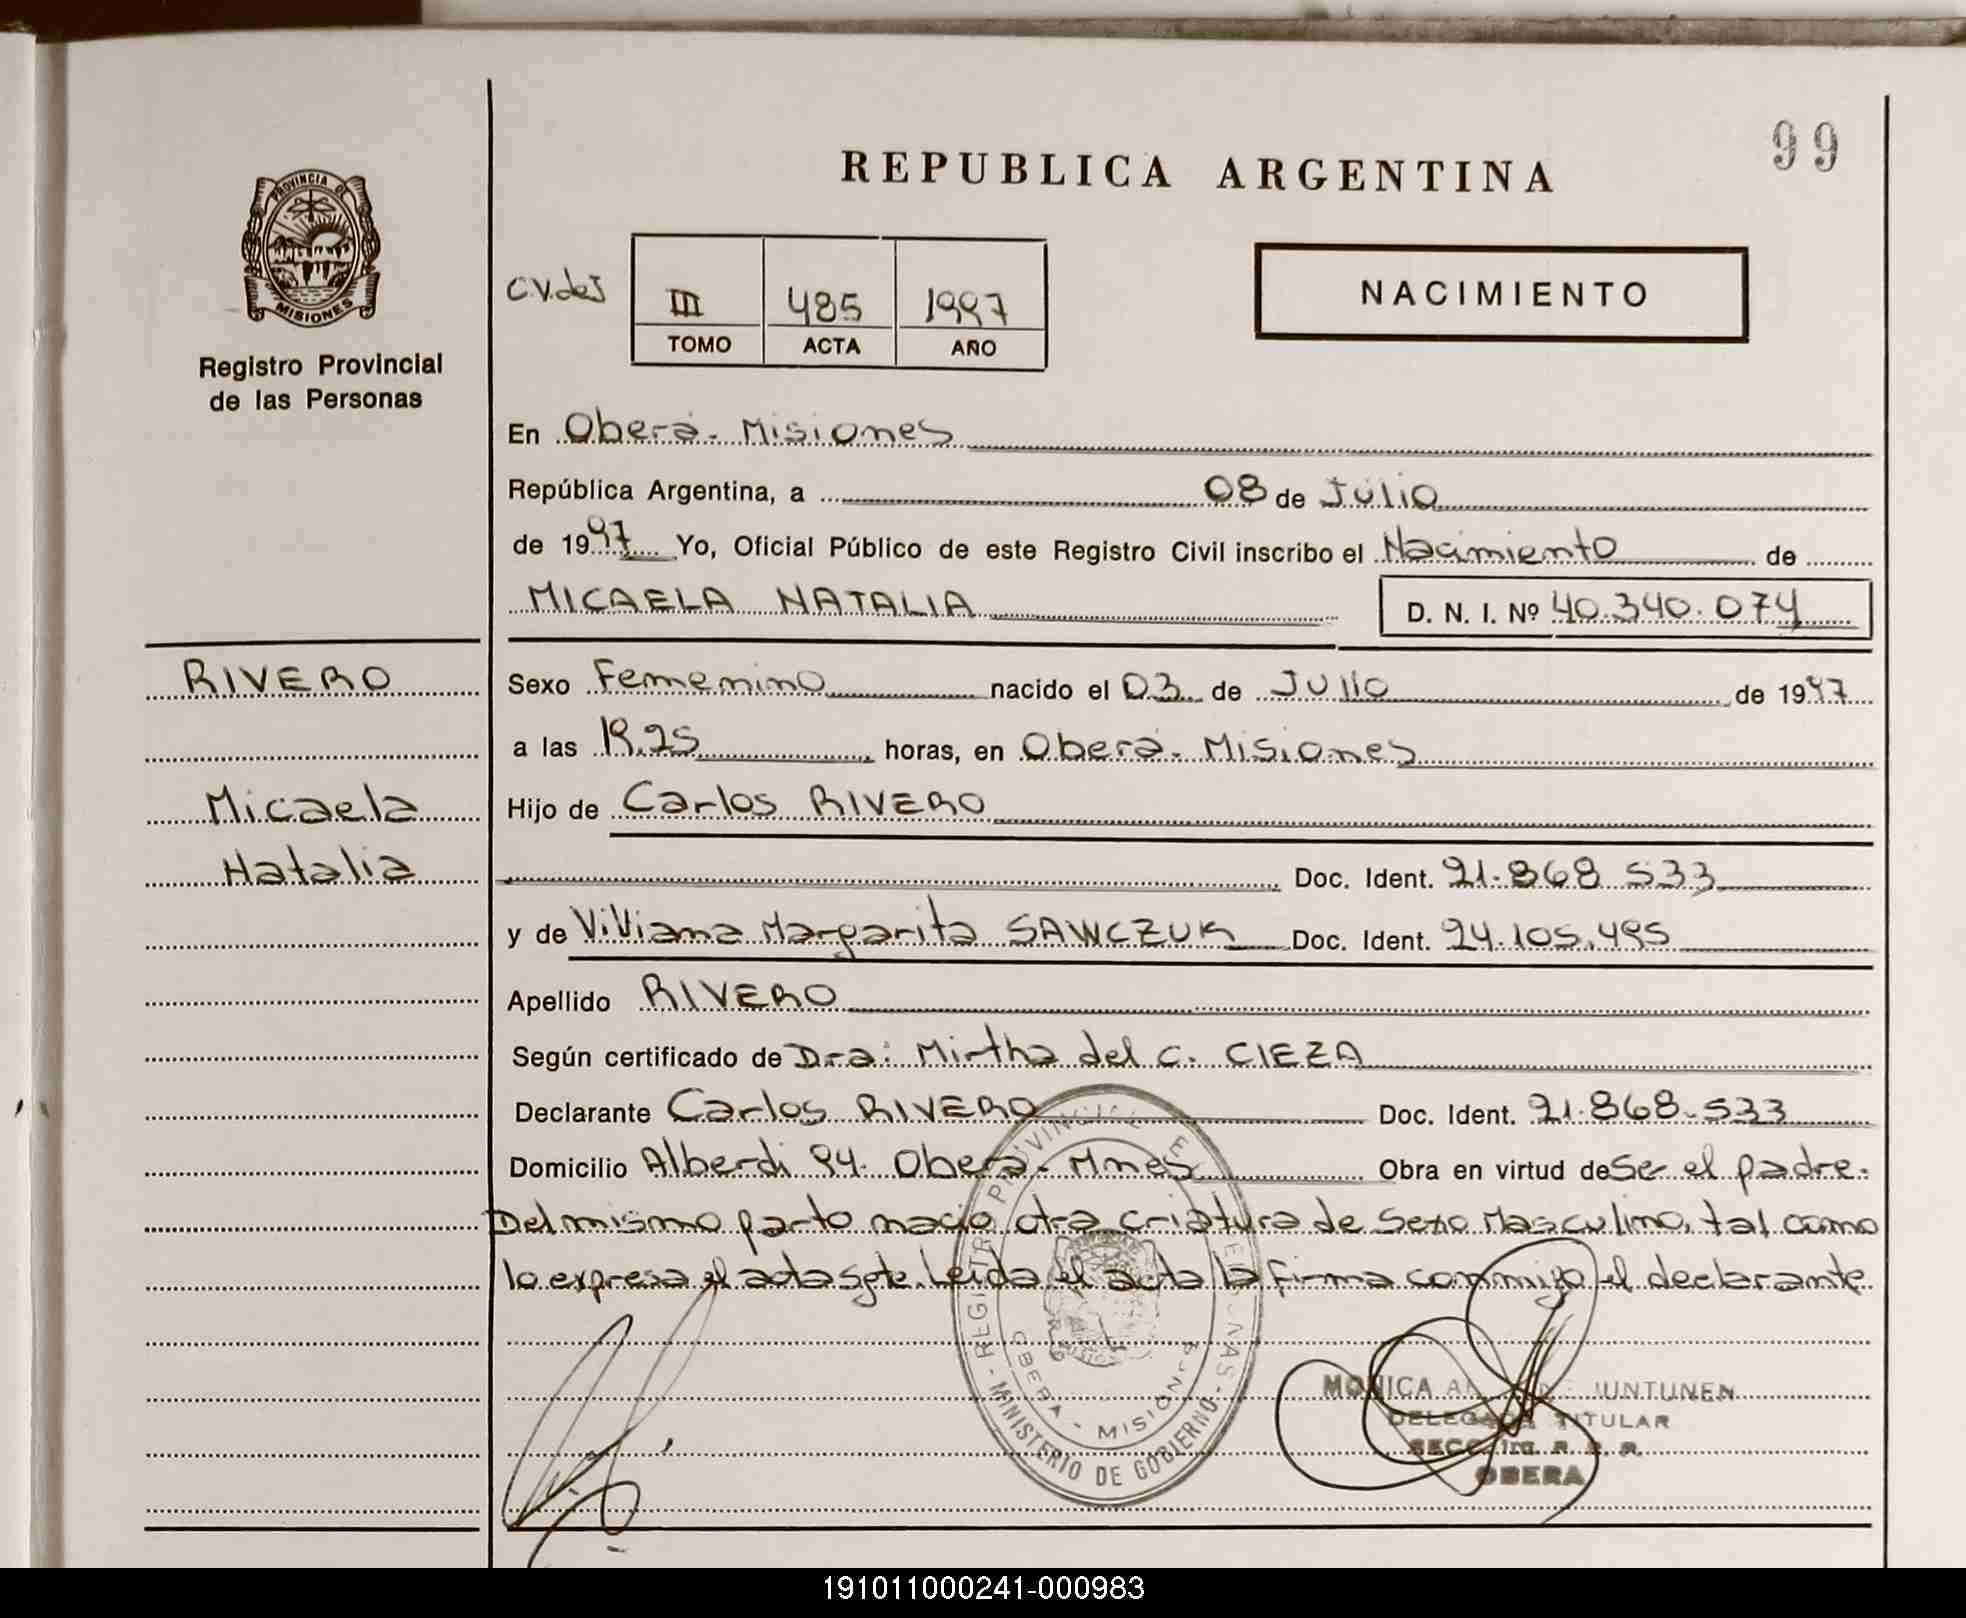 99
REPUBLICA ARGENTINA
PROVINCIA DE
MISIONES
Registro Provincial
de las Personas
C.V.deJ
III 485 1997
TOMO ACTA AÑO
NACIMIENTO
En Oberá - Misiones
República Argentina, a 08 de Julio
de 1997 Yo, Oficial Público de este Registro Civil inscribo el Nacimiento de
MICAELA NATALIA D. N. I. Nº 40.340.074
RIVERO
Micaela
Natalia
Sexo Femenino nacido el 03 de Julio de 1997
a las 19.25 horas, en Oberá - Misiones
Hijo de Carlos RIVERO
Doc. Ident. 21.868.533
y de Viviana Margarita SAWCZUK Doc. Ident. 24.105.495
Apellido RIVERO
Según certificado de Dra: Mirtha del C. CIEZA
Declarante Carlos RIVERO Doc. Ident. 21.868.533
Domicilio Alberdi 94. Oberá - Mnes Obra en virtud de Ser el padre.
Del mismo parto nacio otra criatura de Sexo Masculino, tal como
lo expresa el acta sgte. Leída el acta la firma conmigo el declarante
MINISTERIO DE GOBIERNO
OBERA - MISIONES
MONICA JUNTUNEN
DELEGADA TITULAR
OBERA
191011000241-000983